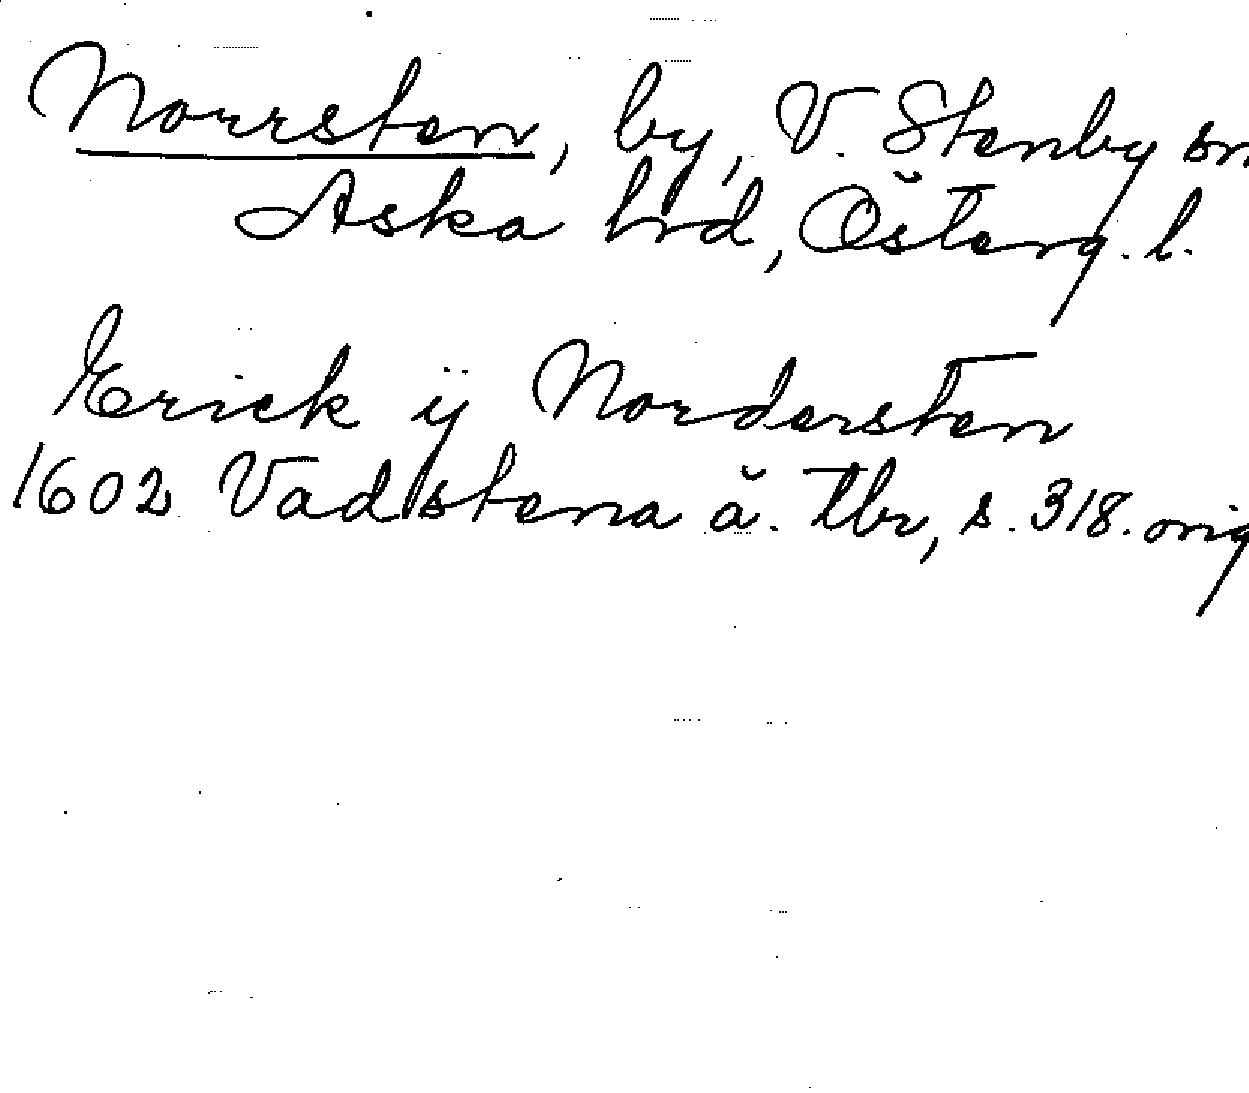 Norrsten, by, V. Stenby sn
Aska hrd, Österg. l.
Erick ÿ Nordersten
1602 Vadstena ä. tbr, s. 318. orig